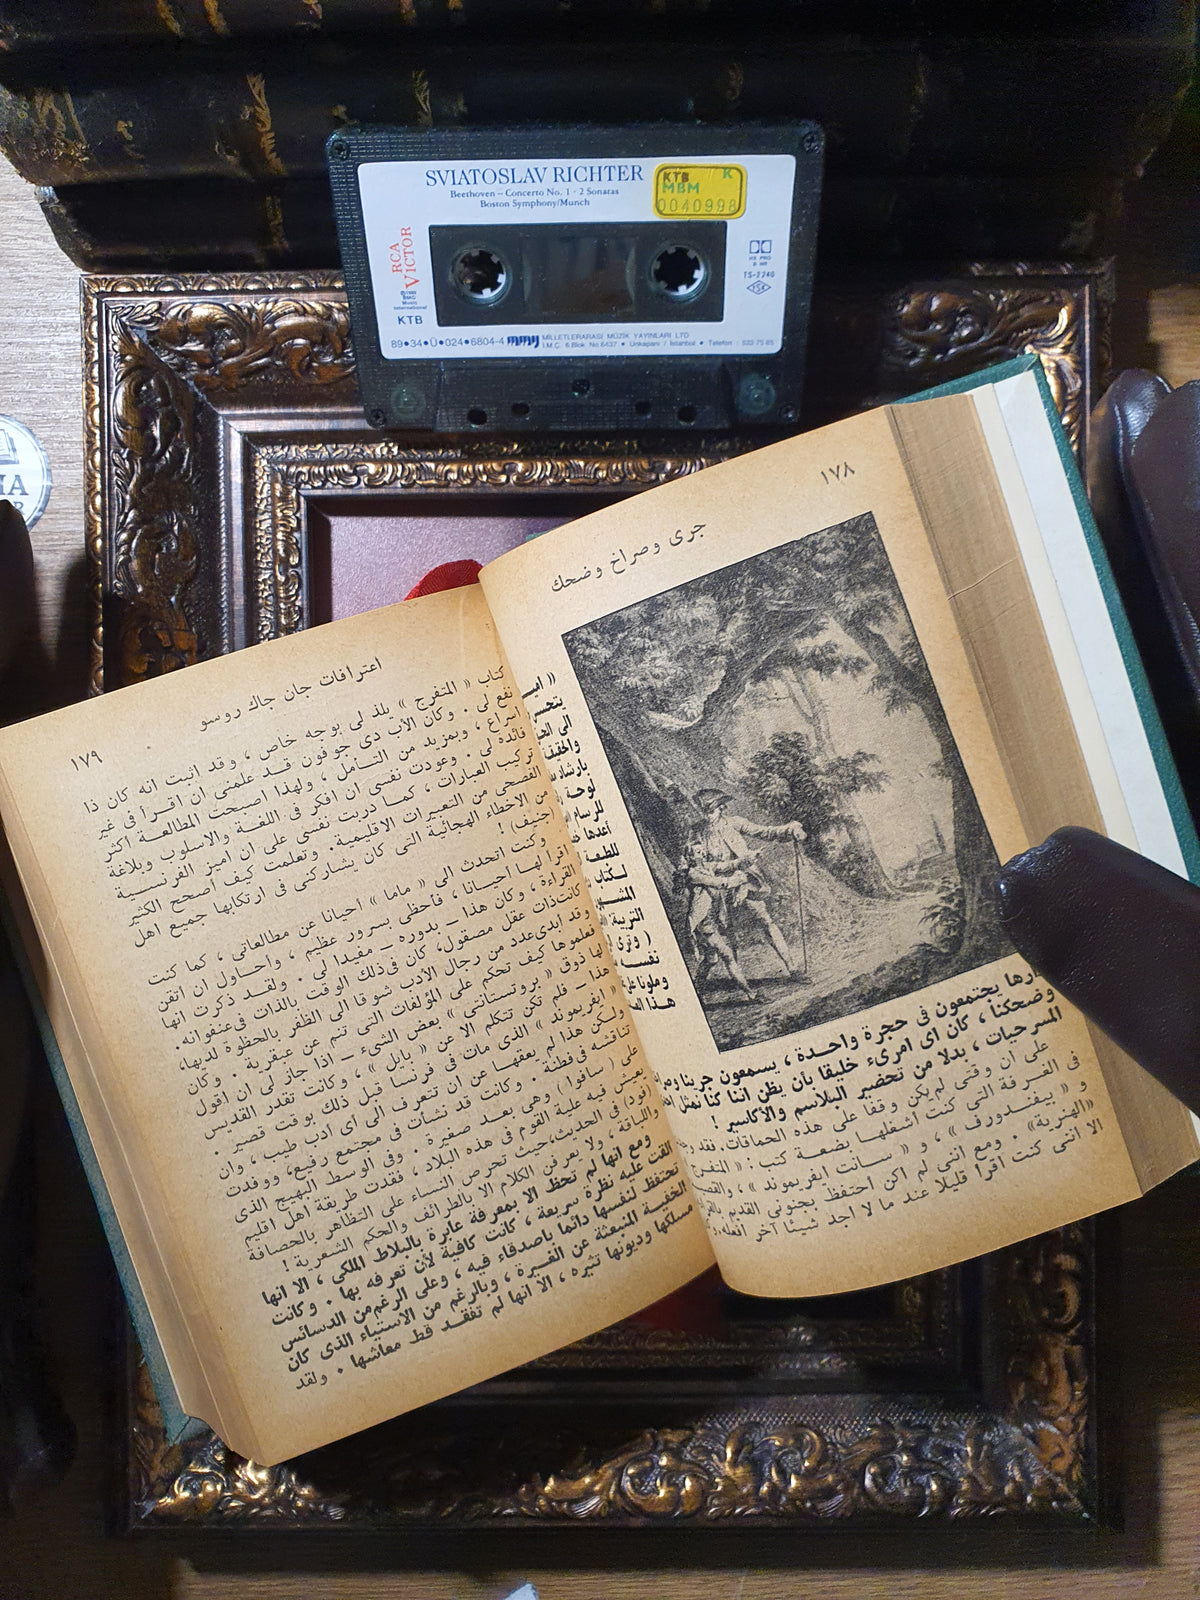 SVIATOSLAV RICHTER
Beethoven – Concerto No. 1 · 2 Sonatas
Boston Symphony/Munch
KTB K
MBM
0040998
RCA
VICTOR
©1988
BMG
Music
International
KTB
HX PRO
B NR
TS-2240
TSE
89•34•Ü•024•6804-4 MMY MİLLETLERARASI MÜZİK YAYINLARI LTD
İ.M.Ç. 6.Blok No.6437 • Unkapanı / İstanbul • Telefon : 522 75 85
١٧٨
جرى وصراخ وضحك
« اميـ
الى
بارشاد
لوحة
للرسام
أعدها
للطبعة
لكتاب
التربية
( وترى
نفسه
هذا
ـارها يجتمعون فى حجرة واحدة ، يسمعون جرينا
وضحكنا ، كان اى امرىء خليقا بأن يظن اننا كنا نمثل
المسرحيات ، بدلا من تحضير البلاسم والأكاسير !
على ان وقتى لم يكن وقفا على هذه الحماقات. فقد
فى الغرفة التى كنت أشغلها بضعة كتب : « المتفرج
و « بيفندورف » ، و « سانت ايفريموند » ،
«الهنرية» . ومع اننى لم اكن احتفظ بجنونى القديم
الا اننى كنت اقرا قليلا عند ما لا اجد شيئا آخر افعله.
اعترافات جان جاك روسو
١٧٩
كتاب « المتفرج » يلذ لى بوجه خاص ، وقد اثبت انه كان ذا
نفع لى . وكان الأب دى جوفون قد علمنى ان اقرأ فى غير
اسراع ، وبمزيد من التأمل ، ولهذا اصبحت المطالعة اكثر
فائدة لى . وعودت نفسى ان افكر فى اللغة والاسلوب وبلاغة
تركيب العبارات ، كما دربت نفسى على ان اميز الفرنسية
الفصحى من التعبيرات الاقليمية. وتعلمت كيف أصحح الكثير
من الاخطاء الهجائية التى كان يشاركنى فى ارتكابها جميع اهل
(جنيف) !
وكنت اتحدث الى « ماما » احيانا عن مطالعاتى ، كما كنت
اقرا لها احيانا ، فأحظى بسرور عظيم ، واحاول ان اتقن
القراءة ، وكان هذا – بدوره – مفيدا لى . ولقد ذكرت انها
كانت ذات عقل مصقول، كان فى ذلك الوقت بالذات فى عنفوانه.
وقد ابدى عدد من رجال الادب شوقا الى الظفر بالحظوة لديها،
فعلموها كيف تحكم على المؤلفات التى تنم عن عبقرية . وكان
لها ذوق « بروتستانتى » بعض الشىء – اذا جاز لى ان اقول
هذا – فلم تكن تتكلم الا عن « بايل » ، وكانت تقدر القديس
« ايفريموند » الذى مات فى فرنسا قبل ذلك بوقت قصير .
ولكن هذا لم يعقها عن ان تتعرف الى اى ادب طيب ، وان
تناقشه فى فطنة . وكانت قد نشأت فى مجتمع رفيع، ووفدت
على ( سافوا ) وهى بعد صغيرة . وفى الوسط البهيج الذى
يعيش فيه علية القوم فى هذه البلاد ، فقدت طريقة اهل اقليم
(فود) فى الحديث، حيث تحرص النساء على التظاهر بالحصافة
واللباقة ، ولا يعرفن الكلام الا بالطرائف والحكم الشعرية !
ومع انها لم تحظ الا بمعرفة عابرة بالبلاط الملكى ، الا انها
القت عليه نظرة سريعة ، كانت كافية لأن تعرفه بها . وكانت
تحتفظ لنفسها دائما بأصدقاء فيه ، وعلى الرغم من الدسائس
الخفية المنبعثة عن الغيرة ، وبالرغم من الاستياء الذى كان
مسلكها وديونها تثيره ، الا انها لم تفقد قط معاشها . ولقد